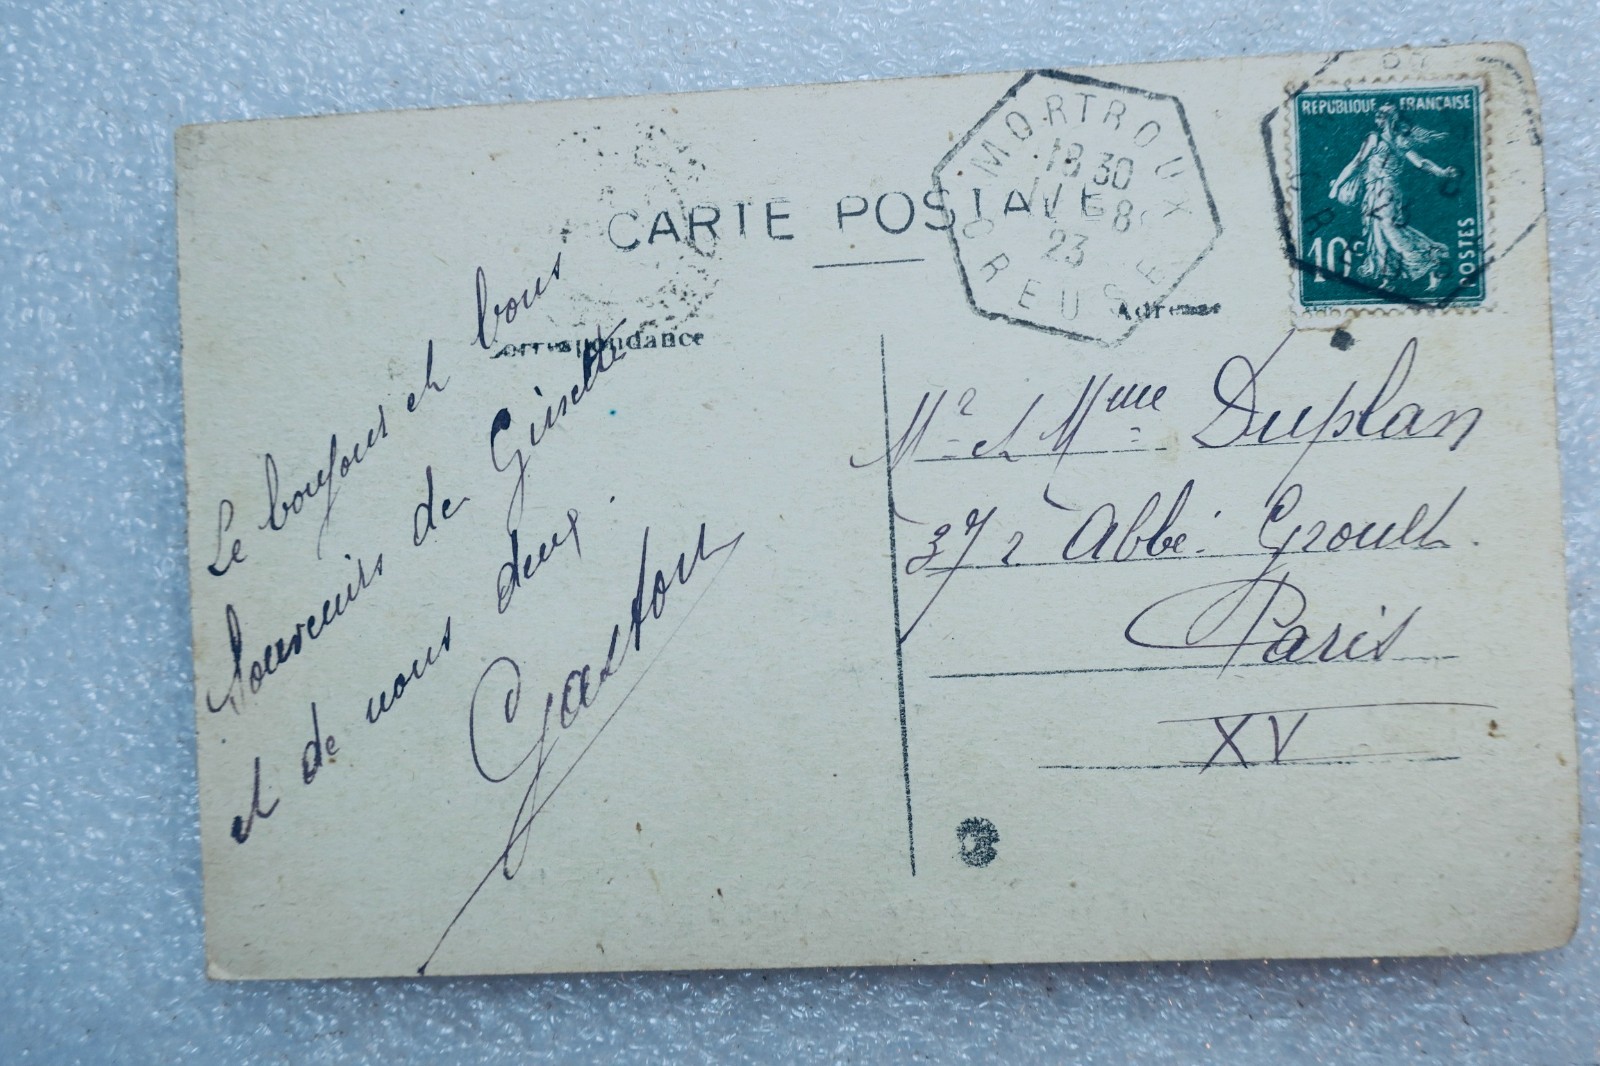 CARTE POSTALE
MORTROUX
18 30
8
23
CREUSE
REPUBLIQUE FRANÇAISE
10c
POSTES
Correspondance
Adresse
Le bonjour et bons
souvenirs de Ginette
et de nous deux.
Gaston
Mr et Mme Duplan
37 r Abbé Groult.
Paris
XV